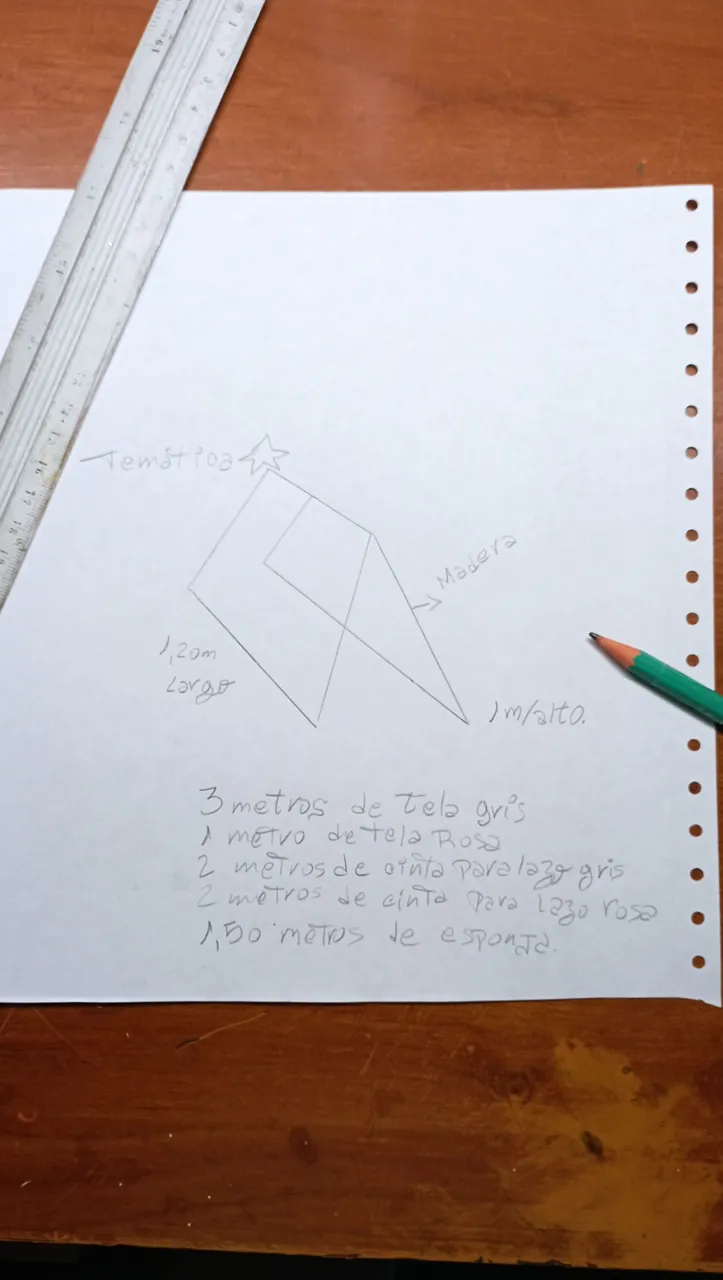 Temática
Madera
1,20m
Largo
1m/alto.
3 metros de tela gris
1 metro de tela Rosa
2 metros de cinta para lazo gris
2 metros de cinta para lazo rosa
1,50 metros de esponja.